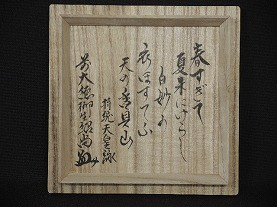 春すぎて
夏来にけらし
白妙の
衣ほすてふ
天の香具山
持統天皇御詠
前大徳柳生紹尚